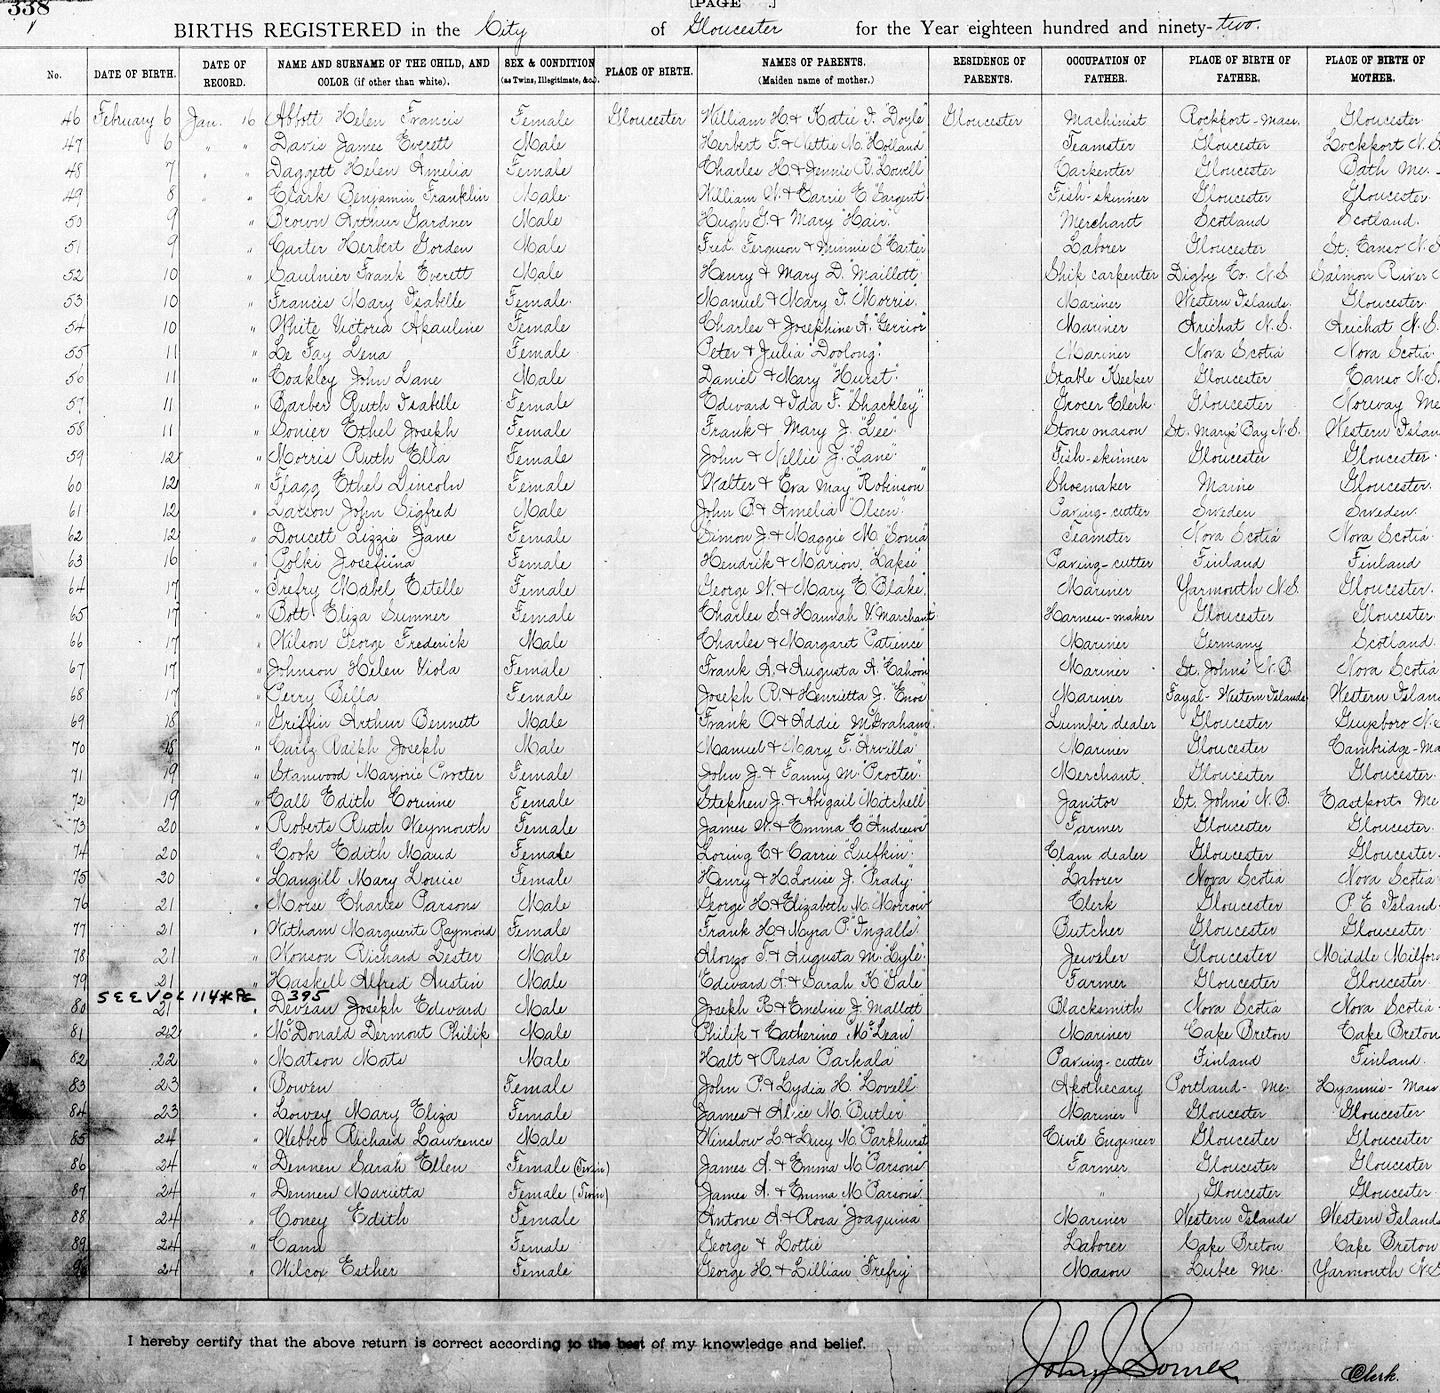 338
[PAGE .]
BIRTHS REGISTERED in the City of Gloucester for the Year eighteen hundred and ninety-two.
No. DATE OF BIRTH. DATE OF RECORD. NAME AND SURNAME OF THE CHILD, AND COLOR (if other than white). SEX & CONDITION (as Twins, Illegitimate, &c.). PLACE OF BIRTH. NAMES OF PARENTS. (Maiden name of mother.) RESIDENCE OF PARENTS. OCCUPATION OF FATHER. PLACE OF BIRTH OF FATHER. PLACE OF BIRTH OF MOTHER.
46 February 6 Jan. 16 Abbott Helen Francis Female Gloucester William H. & Katie F. "Doyle" Gloucester Machinist Rockport-Mass. Gloucester
47 6 " " Davis James Everett Male Herbert F. & Nettie M. "Holland" Teamster Gloucester Lockport N.S.
48 7 " " Daggett Helen Amelia Female Charles H. & Jennie R. "Lowell" Carpenter Gloucester Bath Me.
49 8 " " Clark Benjamin Franklin Male William N. & Carrie E. "Sargent" Fish-skinner Gloucester Gloucester
50 9 " Brown Arthur Gardner Male Hugh G. & Mary "Hair" Merchant Scotland Scotland.
51 9 " Carter Herbert Gorden Male Fred. Ferguson & Minnie S. "Carter" Laborer Gloucester St. Canso N.S.
52 10 " Saulnier Frank Everett Male Henry & Mary D. "Maillett" Ship carpenter Digby Co. N.S. Salmon River
53 10 " Francis Mary Isabelle Female Manuel & Mary I. "Morris" Mariner Western Islands Gloucester
54 10 " White Victoria Apauline Female Charles & Josephine A. "Gerrior" Mariner Arichat N.S. Arichat N.S.
55 11 " Le Fay Lena Female Peter & Julia "Doolong" Mariner Nova Scotia Nova Scotia
56 11 " Coakley John Lane Male Daniel & Mary "Hurst" Stable Keeper Gloucester Canso N.S.
57 11 " Barber Ruth Isabelle Female Edward & Ida F. "Shackley" Grocer Clerk Gloucester Norway Me
58 11 " Sonier Ethel Joseph Female Frank & Mary J. "Lee" Stone mason St. Mary's Bay N.S. Western Islan
59 12 " Morris Ruth Ella Female John & Nellie J. "Lane" Fish-skinner Gloucester Gloucester
60 12 " Flagg Ethel Lincoln Female Walter & Eva May "Robinson" Shoemaker Maine Gloucester
61 12 " Larson John Sigfred Male John B. & Amelia "Olsen" Paving-cutter Sweden Sweden
62 12 " Doucett Lizzie Jane Female Simon J. & Maggie M. "Sonia" Teamster Nova Scotia Nova Scotia
63 16 " Polki Josefiina Female Hendrik & Marion "Laksi" Paving-cutter Finland Finland
64 17 " Trefry Mabel Estelle Female George N. & Mary E. "Blake" Mariner Yarmouth N.S. Gloucester
65 17 " Bott Eliza Sumner Female Charles S. & Hannah V. "Marchant" Harness-maker Gloucester Gloucester
66 17 " Wilson George Frederick Male Charles & Margaret "Patience" Mariner Germany Scotland
67 17 " Johnson Helen Viola Female Frank A. & Augusta A. "Cahoon" Mariner St. Johns' N.B. Nova Scotia
68 17 " Perry Bella Female Joseph R. & Henrietta J. "Enos" Mariner Fayal-Western Islands Western Island
69 18 " Griffin Arthur Bennett Male Frank O. & Addie M. "Graham" Lumber dealer Gloucester Guysboro N.S.
70 18 " Ralph Joseph Male Manuel & Mary F. "Arvilla" Mariner Gloucester Cambridge-Ma
71 19 " Stanwood Marjorie Procter Female John J. & Fanny M. "Procter" Merchant Gloucester Gloucester
72 19 " Call Edith Corinne Female Stephen J. & Abigail "Mitchell" Janitor St. Johns' N.B. Eastport Me
73 20 " Roberts Ruth Weymouth Female James W. & Emma E. "Andrews" Farmer Gloucester Gloucester
74 20 " Cook Edith Maud Female Loring C. & Carrie "Lufkin" Clam dealer Gloucester Gloucester
75 20 " Langill Mary Louise Female Henry & H. Louise J. "Prady" Laborer Nova Scotia Nova Scotia
76 21 " Morse Charles Parsons Male George H. & Elizabeth M. "Morrow" Clerk Gloucester P. E. Island
77 21 " Witham Marguerite Raymond Female Frank H. & Myra P. "Ingalls" Butcher Gloucester Gloucester
78 21 " Wonson Richard Lester Male Alonzo F. & Augusta M. "Lyle" Jeweler Gloucester Middle Milford
79 21 " Haskell Alfred Austin Male Edward A. & Sarah K. "Gale" Farmer Gloucester Gloucester
SEE VOL 114 * PG 395
80 21 " Deveau Joseph Edward Male Joseph B. & Emeline J. "Mallett" Blacksmith Nova Scotia Nova Scotia
81 22 " McDonald Dermont Philip Male Philip & Catherine "McLean" Mariner Cape Breton Cape Breton
82 22 " Matson Mats Male Halt & Reda "Parkala" Paving-cutter Finland Finland
83 23 " Bowen Female John P. & Lydia H. "Lovell" Apothecary Portland-Me. Hyannis-Mass
84 23 " Lowey Mary Eliza Female James & Alice M. "Butler" Mariner Gloucester Gloucester
85 24 " Webber Richard Lawrence Male Winslow L. & Lucy M. "Parkhurst" Civil Engineer Gloucester Gloucester
86 24 " Dennen Sarah Ellen Female (Twin) James A. & Emma M. "Parsons" Farmer Gloucester Gloucester
87 24 " Dennen Marietta Female (Twin) James A. & Emma M. "Parsons" " Gloucester Gloucester
88 24 " Coney Edith Female Antone A. & Rosa "Joaquina" Mariner Western Islands Western Islands
89 24 " Cann Female George & Lottie Laborer Cape Breton Cape Breton
90 24 " Wilcox Esther Female George H. & Lillian "Trefry" Mason Lubec Me. Yarmouth N.S.
I hereby certify that the above return is correct according to the best of my knowledge and belief.
John J. Somes Clerk.